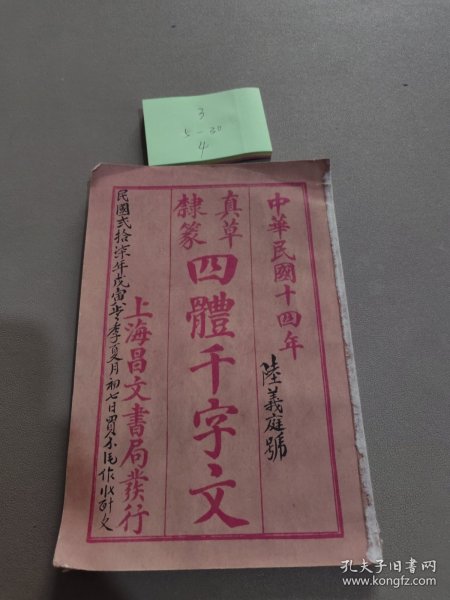 3
5-30
4
中華民國十四年
陸義庭號
真草
隸篆
四體千字文
上海昌文書局發行
民國弍拾柒年戊寅歲季夏月初七日買
孔夫子旧书网
www.kongfz.com